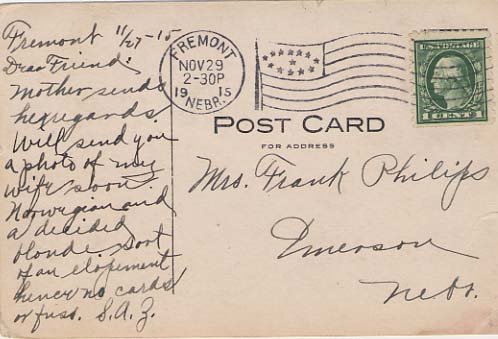 Fremont 11/27-15
Dear Friend:
Mother sends
her regards.
Will send you
a photo of my
wife soon.
Norwegian and
a decided
blonde. Sort
of an elopement
hence no cards
or fuss. S.A.Z.
FREMONT
NOV 29
2-30P
1915
NEBR.
POST CARD
FOR ADDRESS
Mrs. Frank Philips
Emerson
Nebr.
1 CENT 1